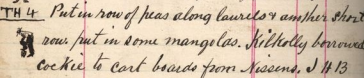 TH 4 Put in row of peas along laurels & another short
row. put in some mangolas. Kilkolly borrowed
cockie to cart boards from Nissens. J H 13